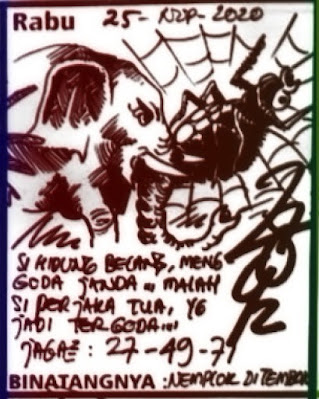 Rabu 25-NOP-2020
SI HIDUNG BELANG, MENG
GODA JANDA... MALAH
SI PERJAKA TUA, YG
JADI TERGODA...
JAGA2: 27-49-71
BINATANGNYA :NEMPLOK DI TEMBOK